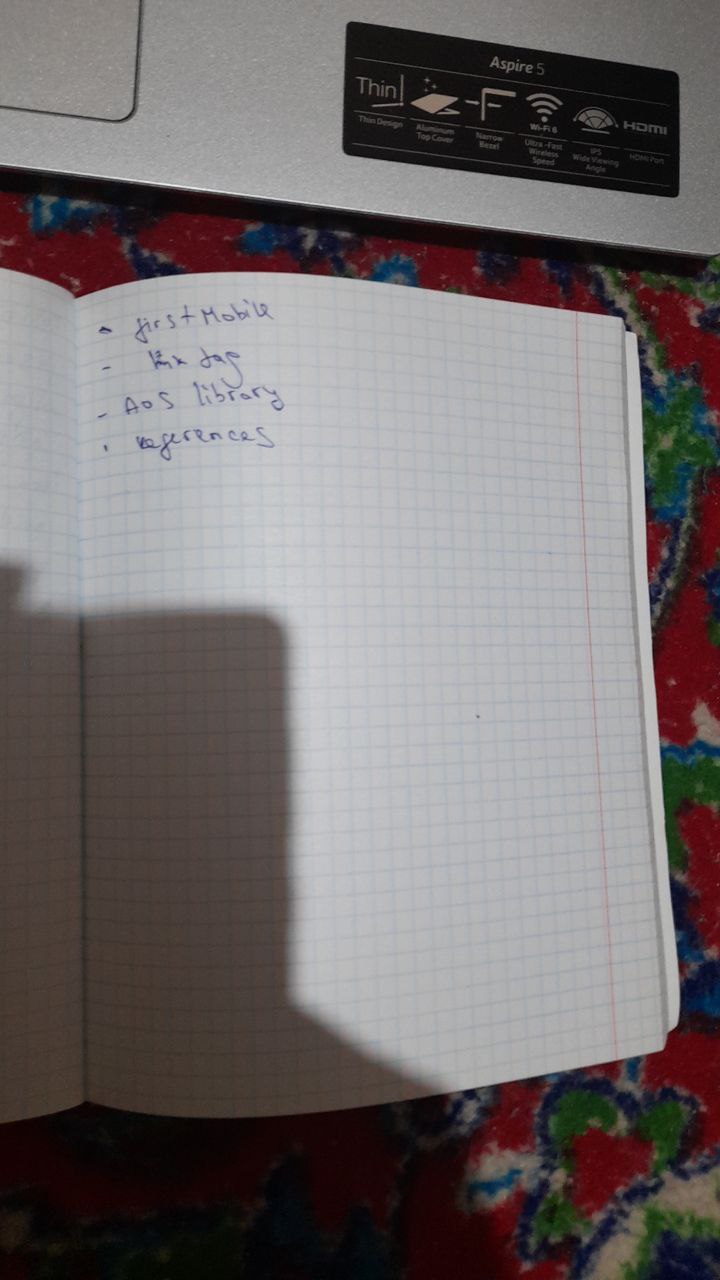 Aspire 5
Thin
Thin Design
Aluminum
Top Cover
Narrow
Bezel
Wi-Fi 6
Ultra-Fast
Wireless
Speed
IPS
Wide Viewing
Angle
HDMI
HDMI Port
- first Mobile
- link tag
- AOS library
- references